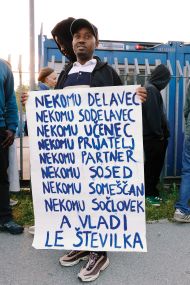 NEKOMU DELAVEC
NEKOMU SODELAVEC
NEKOMU UČENEC
NEKOMU PRIJATELJ
NEKOMU PARTNER
NEKOMU SOSED
NEKOMU SOMEŠČAN
NEKOMU SOČLOVEK
A VLADI
LE ŠTEVILKA